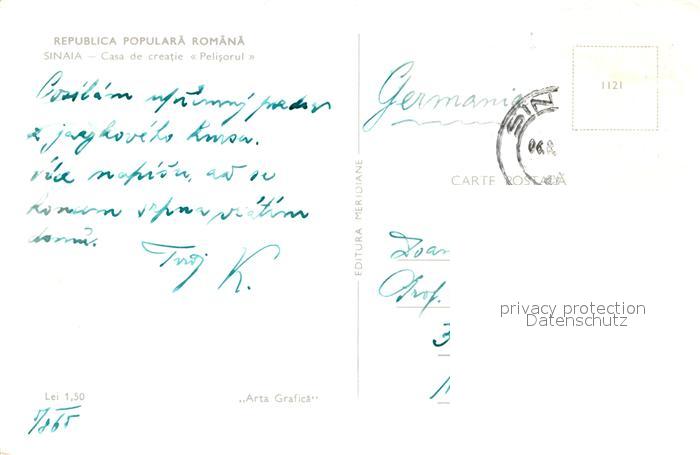 REPUBLICA POPULARĂ ROMÂNĂ
SINAIA — Casa de creație « Pelișorul »
Posílám upřímný pozdrav
z jazykového kursu.
Více napíšu, až se
koncem srpna vrátím
domů.
Tvůj K.
Lei 1,50
„Arta Grafică“
EDITURA MERIDIANE
Germania
1121
SIN
CARTE POȘTALĂ
Prof.
privacy protection
Datenschutz